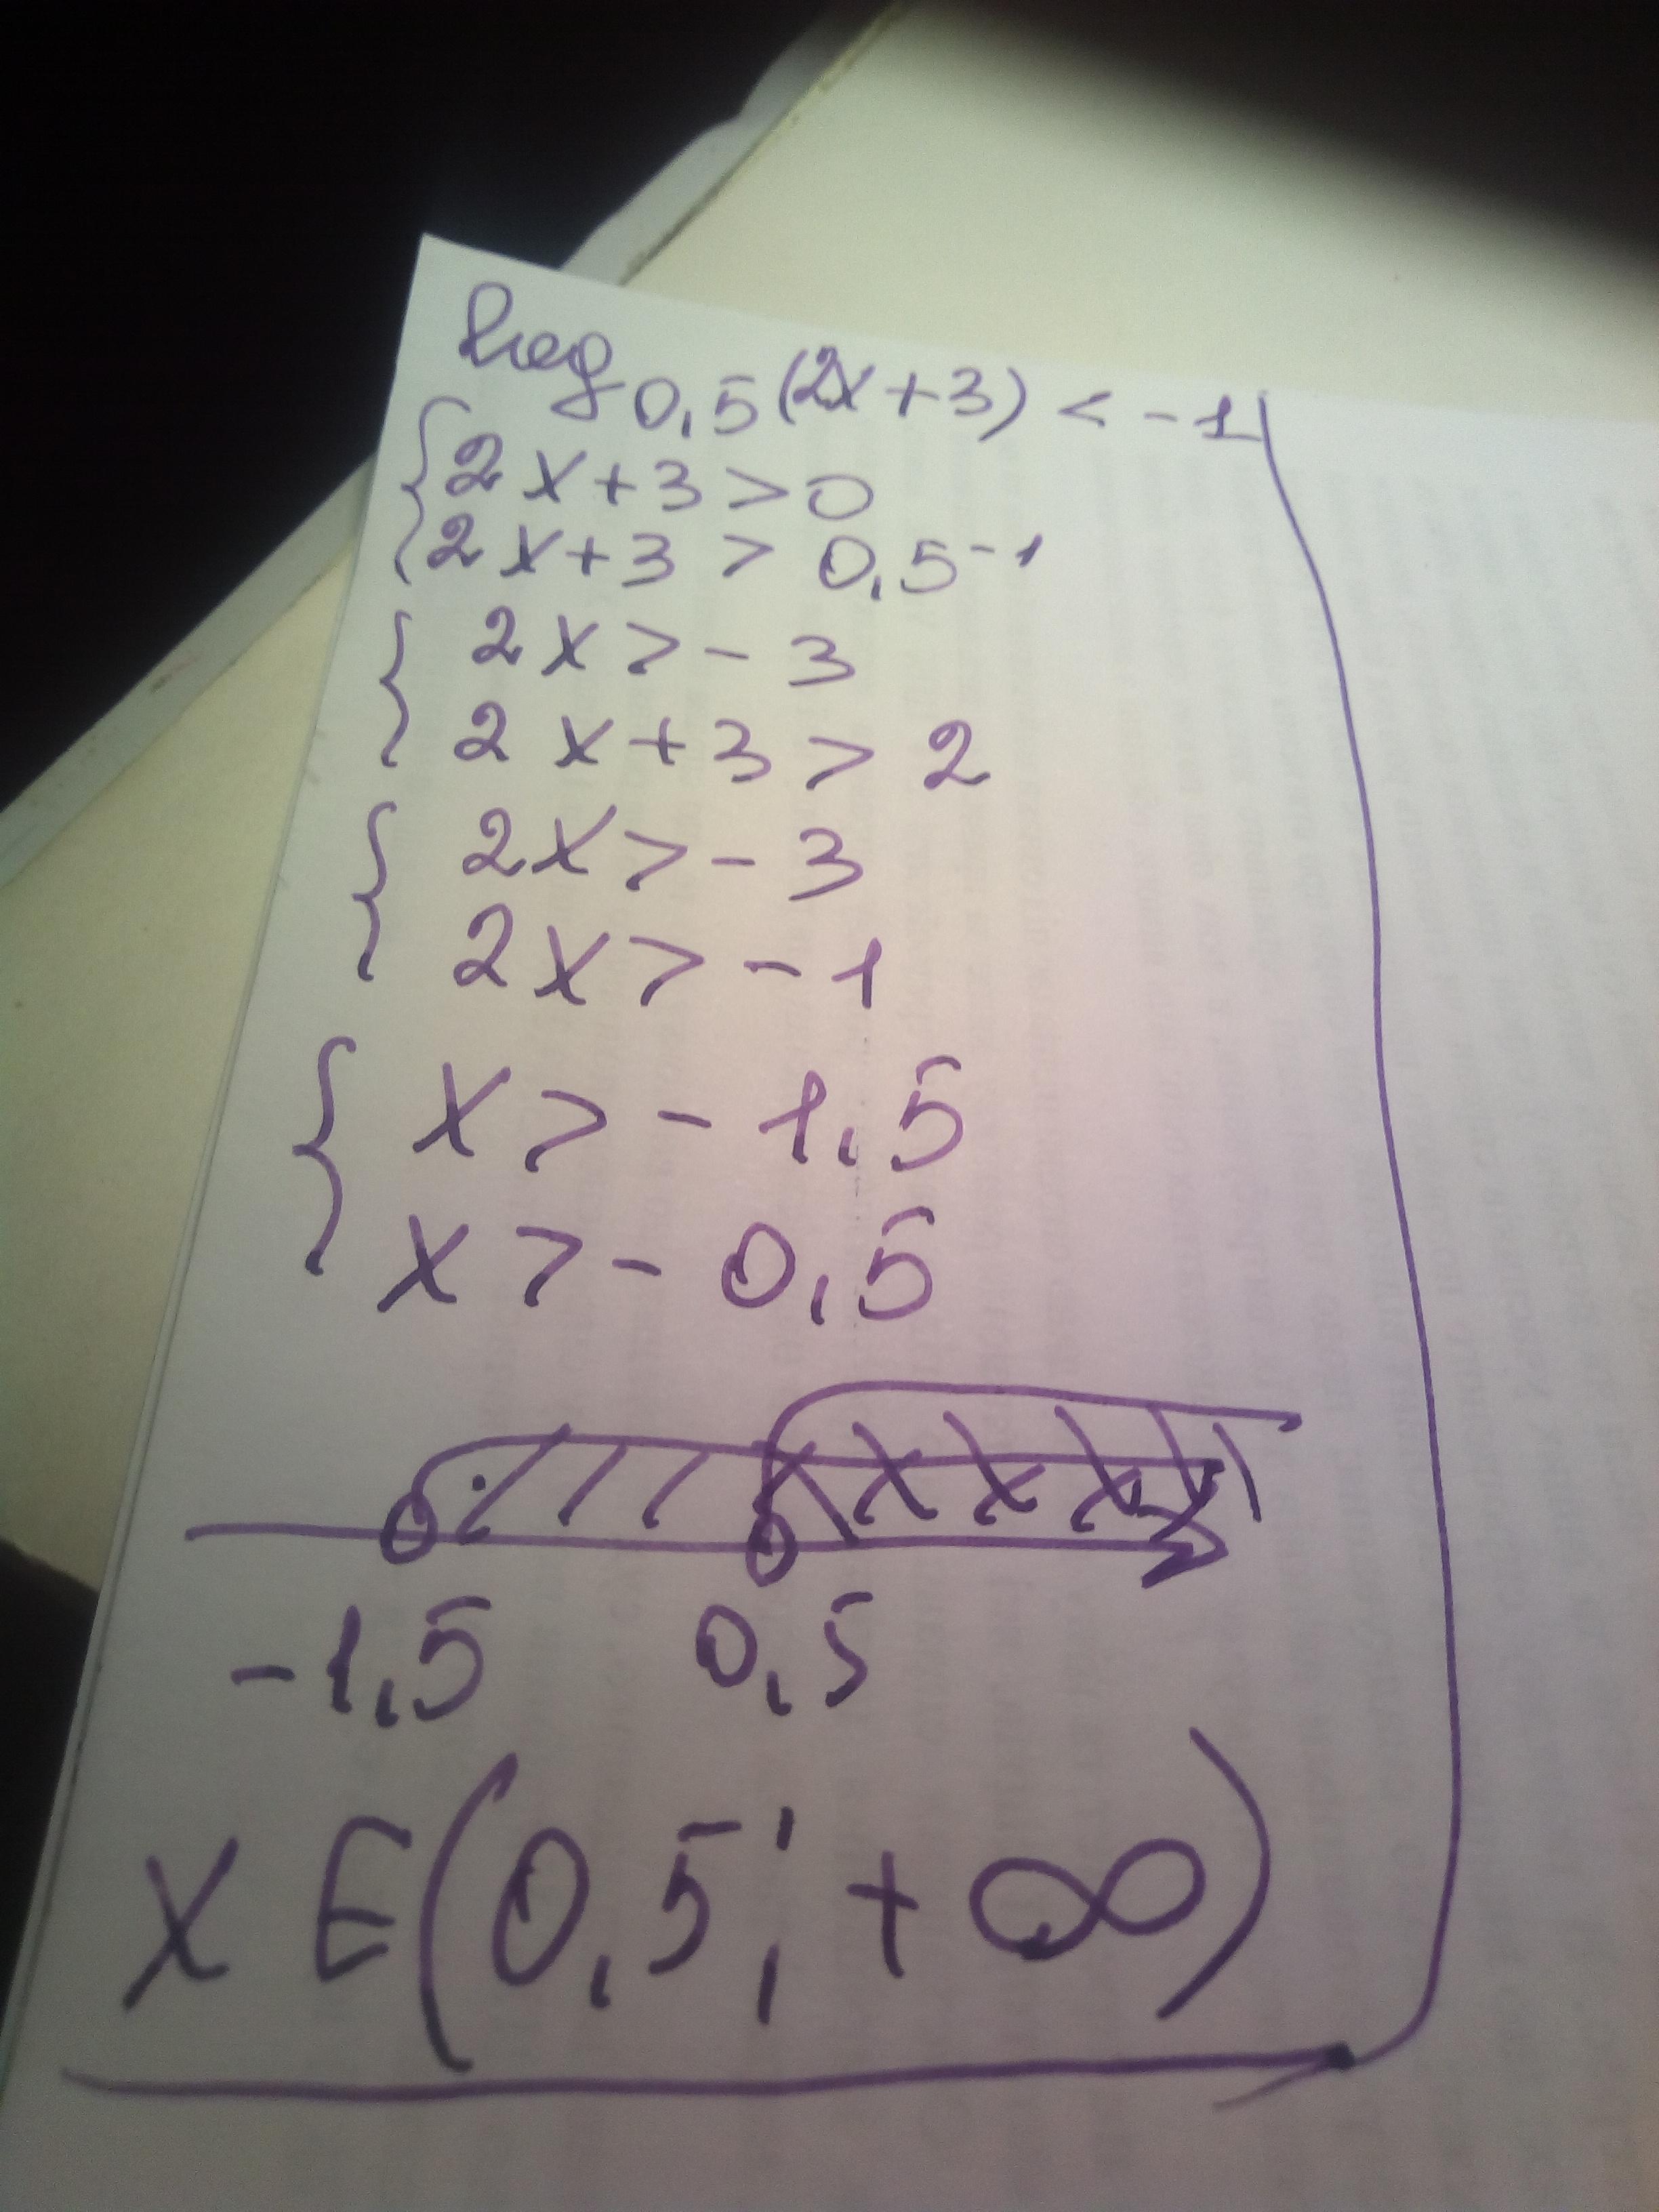 log 0,5 (2x+3) < -1
2x+3>0
2x+3 > 0,5⁻¹
2x>-3
2x+3>2
2x>-3
2x>-1
x>-1,5
x>-0,5
-1,5 0,5
x ∈ (0,5; +∞)